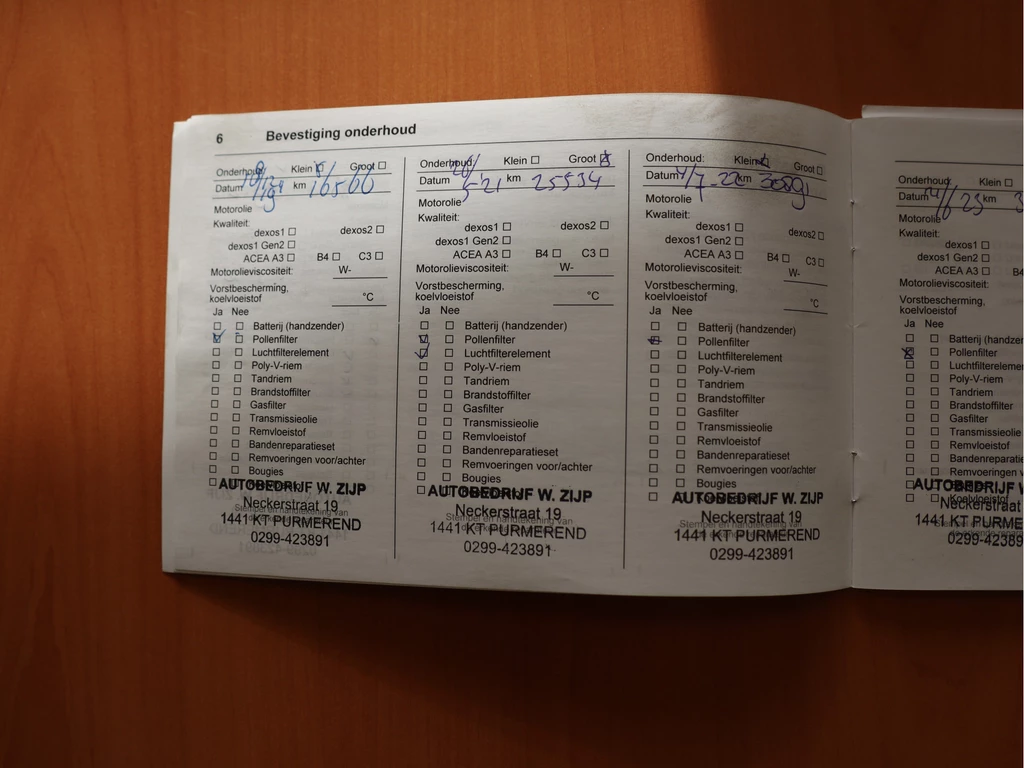 6 Bevestiging onderhoud
Onderhoud: Klein Groot
Datum km 16566
Motorolie
Kwaliteit:
dexos1 dexos2
dexos1 Gen2
ACEA A3 B4 C3
Motorolieviscositeit: W-
Vorstbescherming,
koelvloeistof °C
Ja Nee
Batterij (handzender)
Pollenfilter
Luchtfilterelement
Poly-V-riem
Tandriem
Brandstoffilter
Gasfilter
Transmissieolie
Remvloeistof
Bandenreparatieset
Remvoeringen voor/achter
Bougies
AUTOBEDRIJF W. ZIJP
Neckerstraat 19
1441 KT PURMEREND
0299-423891
Onderhoud: Klein Groot
Datum 5-'21 km 25534
Motorolie
Kwaliteit:
dexos1 dexos2
dexos1 Gen2
ACEA A3 B4 C3
Motorolieviscositeit: W-
Vorstbescherming,
koelvloeistof °C
Ja Nee
Batterij (handzender)
Pollenfilter
Luchtfilterelement
Poly-V-riem
Tandriem
Brandstoffilter
Gasfilter
Transmissieolie
Remvloeistof
Bandenreparatieset
Remvoeringen voor/achter
Bougies
AUTOBEDRIJF W. ZIJP
Neckerstraat 19
Stempel en handtekening van
1441 KT PURMEREND
0299-423891
Onderhoud: Klein Groot
Datum 4/7-22 km 30891
Motorolie
Kwaliteit:
dexos1 dexos2
dexos1 Gen2
ACEA A3 B4 C3
Motorolieviscositeit: W-
Vorstbescherming,
koelvloeistof °C
Ja Nee
Batterij (handzender)
Pollenfilter
Luchtfilterelement
Poly-V-riem
Tandriem
Brandstoffilter
Gasfilter
Transmissieolie
Remvloeistof
Bandenreparatieset
Remvoeringen voor/achter
Bougies
AUTOBEDRIJF W. ZIJP
Neckerstraat 19
Stempel en handtekening van
1441 KT PURMEREND
0299-423891
Onderhoud: Klein
Datum 23 km 3
Motorolie
Kwaliteit:
dexos1
dexos1 Gen2
ACEA A3 B
Motorolieviscositeit:
Vorstbescherming,
koelvloeistof
Ja Nee
Batterij (handzen
Pollenfilter
Luchtfilterelem
Poly-V-riem
Tandriem
Brandstoffilter
Gasfilter
Transmissieolie
Remvloeistof
Bandenreparatie
Remvoeringen v
Bougies
Koelvloeistof
AUTOBEDRIJF W.
Neckerstraat 19
1441 KT PURME
0299-4238